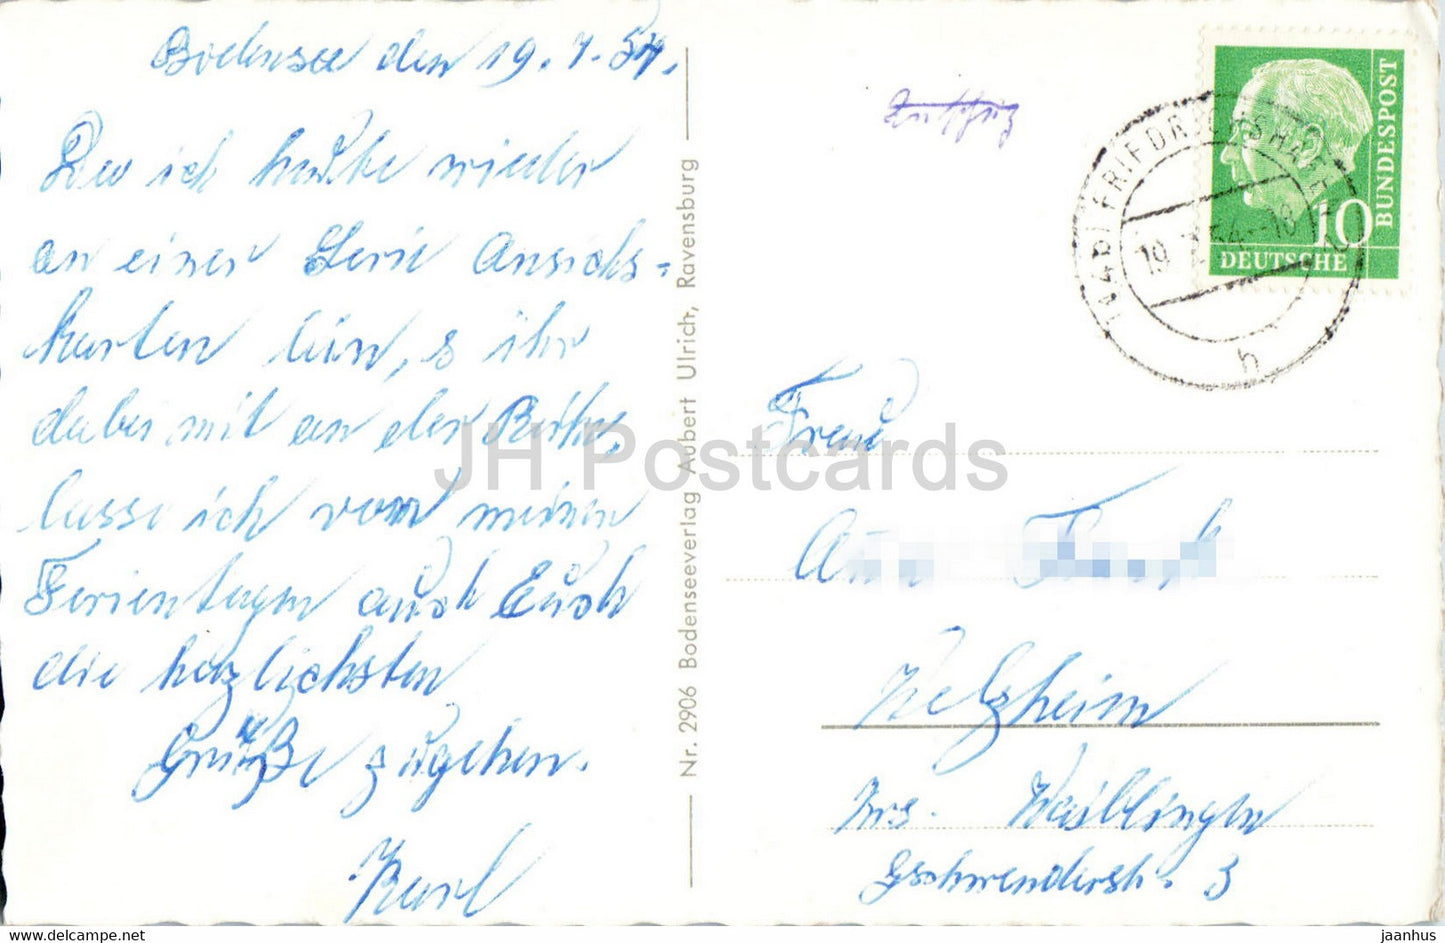 Bodensee den 19.7.54.
Da ich heute wieder
an einer Serie Ansichs-
karten bin, s ihr
dabei mit an der Reihe,
lasse ich von meinen
Ferientagen auch Euch
die herzlichsten
Grüße zugehen.
Karl
Nr. 2906 Bodenseeverlag Aubert Ulrich, Ravensburg
(14b) FRIEDRICHSHAFEN
19.7.54-18
h
DEUTSCHE
BUNDESPOST
10
Frau
Welzheim
Krs. Waiblingen
Gschwenderstr. 3
JH Postcards
www.delcampe.net
jaanhus